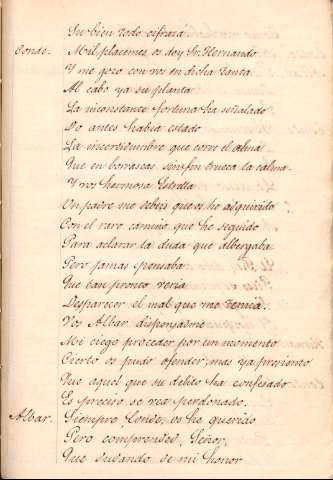 Su bien todo cifrara
Conde. Mil placemes os doy Sr. Hernando
Y me gozo con vos en dicha tanta
Al cabo ya su planta
La inconstante fortuna ha señalado
Do antes habia estado
La incertidumbre que corre el alma
Que en borrascas sin fin trueca la calma.
Y vos hermosa Estrella
Un padre me debeis que os he adquirido
Con el raro camino que he seguido
Para aclarar la duda que albergaba
Pero jamas pensaba
Que tan pronto veria
Desparecer el mal que me temia.
Vos Albar, dispensadme
Mi ciego proceder por un momento
Cierto os pudo ofender, mas ya presiento
Que aquel que su delito ha confesado
Es preciso se vea perdonado.
Albar. Siempre, Conde, os he querido
Pero comprended, Señor,
Que dudando de mi honor